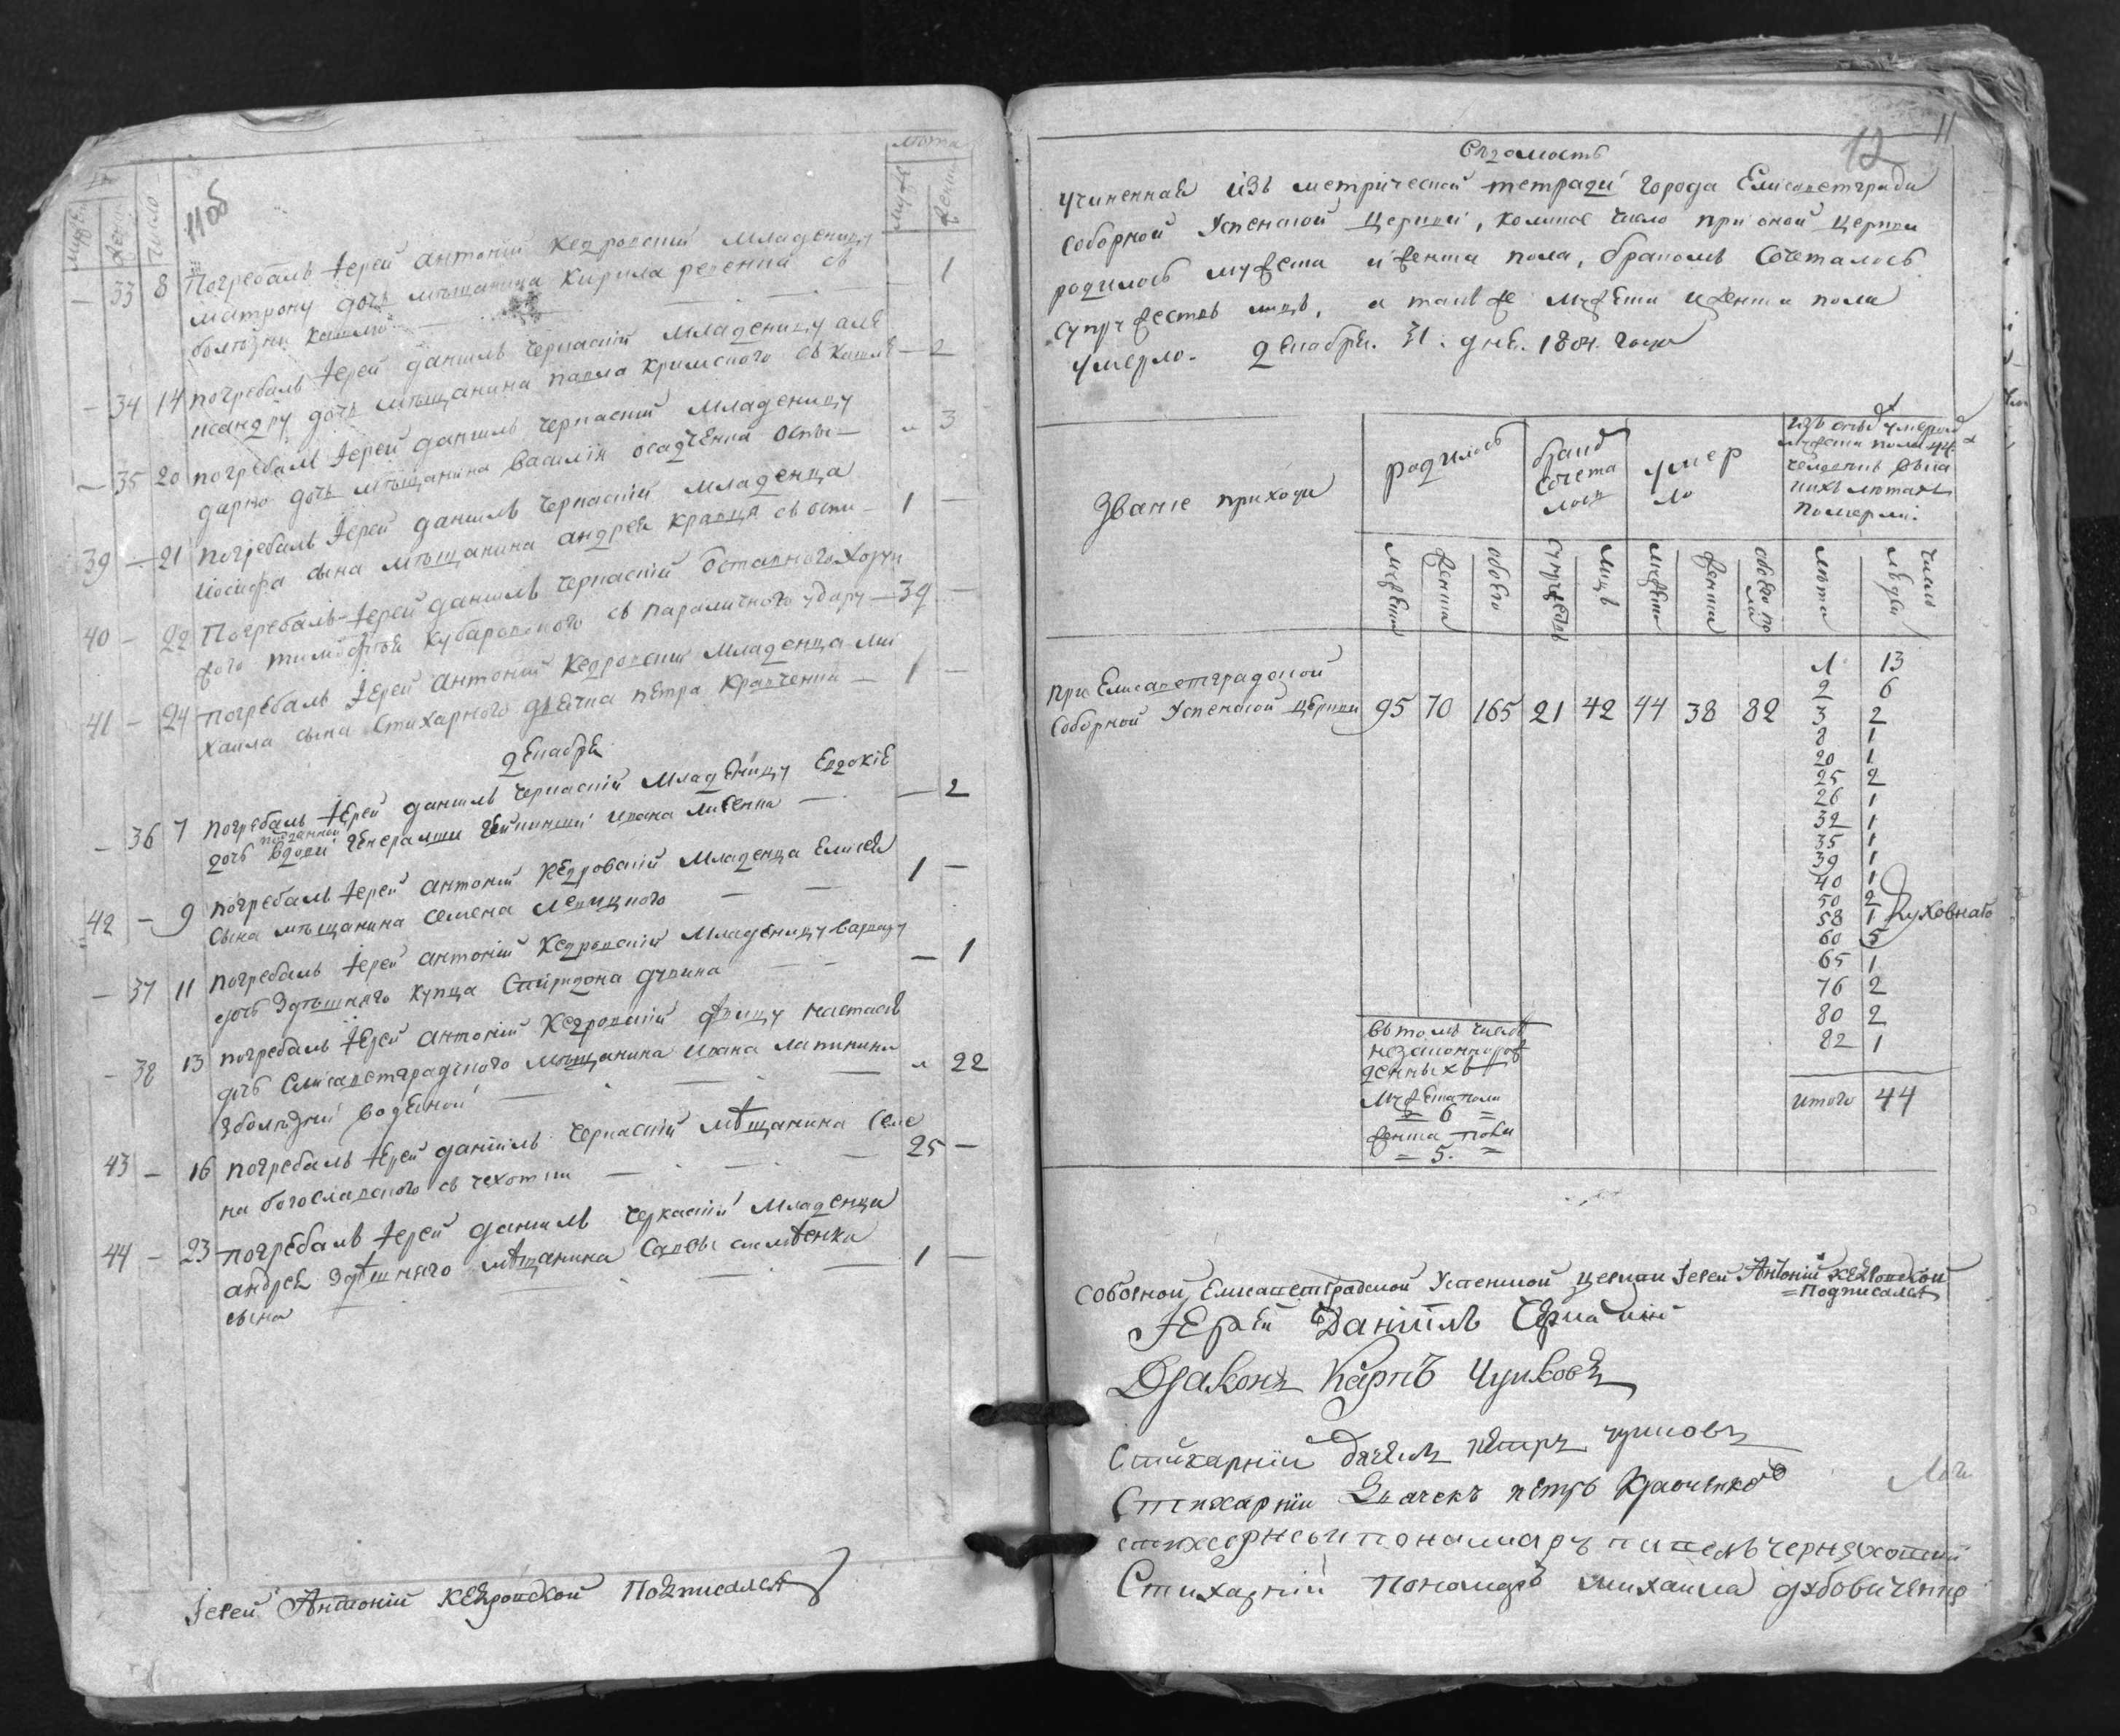 11об
мужеска
женска
число
лѣта
мужеска
женска
— 33 8 Погребалъ Іерей антоній Кедровскій Младеницу
матрону дочь мѣщанина Кирила ревенка съ — 1
болѣзни кашлю
— 34 14 погребалъ Іерей даниилъ Черкаскій Младеницу алѣ
ксандру дочь мѣщанина павла кримского съ кашлѣ — 2
— 35 20 погребалъ Іерей даниилъ черкаскій Младеницу
дарию дочь мѣщанина василія осадченка оспы — 3
39 — 21 погребалъ Іерей даниилъ Черкаскій младенца
Иосифа сына мѣщанина андрея кравца съ оспи — 1 —
40 — 22 Погребалъ Іерей даниилъ черкаскій отставного хорун
жого тимофѣя Кубаровского съ параличного удару — 39 —
41 — 24 погребалъ Іерей Антоній Кедровскій Младенца ми
хаила сына Стихарного дьячка пѣтра Кравченка — 1 —
декабря
— 36 7 погребалъ Іерей даниилъ Черкаскій Младеницу Евдокіе
дочь подданной вдови Генеральши ивана — 2
42 — 9 погребалъ Іерей антоній Кедровскій Младенца Елисея
сына мѣщанина семена левицкого — 1 —
— 37 11 погребалъ Іерей антоній Кедровскій Младеницу варвару
дочь Здѣшняго купца Спиридона — 1
— 38 13 погребалъ Іерей антоній Кедровскій дѣвицу настасію
дочь Елисаветградского мѣщанина ивана лапинина 22
зболѣзни водяной
43 — 16 погребалъ Іерей даніилъ Черкаскій мѣщанина Семе
на богославского съ чехотки — 25 —
44 — 23 погребалъ Іерей даниилъ Черкаскій Младенца
андрея Здѣшняго мѣщанина Саввы
сына — 1 —
Іерей Антоній Кедровской Подписался
12 11
Вѣдомость
Учиненная изъ метрической тетради города Елисаветграда
Соборной Успенской Церкви, коликое число при оной Церкви
родилось мужеска и женска пола, бракомъ Сочеталось
супружествъ лицъ, а также мужеска и женска пола
умерло. декабря. 31: дня. 1804. года
Званіе прихода
родилось
бракъ Сочета лось
умер ло
изъ оныхъ умерло мужеска пола 44
человекъ въ ка
кихъ лѣтахъ
померли.
мужеска
женска
обоего
супружествъ
лицъ
мужеска
женска
обоего по ла
лѣта
число людей
при Елисаветградской
Соборной Успенской Церкви 95 70 165 21 42 44 38 82
1 13
2 6
3 2
8 1
20 1
25 2
26 1
32 1
35 1
39 1
40 1
50 2
58 1 Духовнаго
60 5
65 1
76 2
80 2
82 1
итого 44
въ томъ числѣ
незаконнорож
денныхъ
мужеска пола
= 6 =
женска пола
= 5. =
Соборной Елисаветградской Успенской церкви Іерей Антоній Кедровской
= Подписался
Іерей Даніилъ Черкаскій
Діаконъ Карпъ Чуйковъ
Стихарній дячекъ пѣтръ чуйковъ
Стихарній Дьячекъ пётръ Кравченко
стихарный пономарь павелъ черняховскій
Стихарній Пономарь михаила